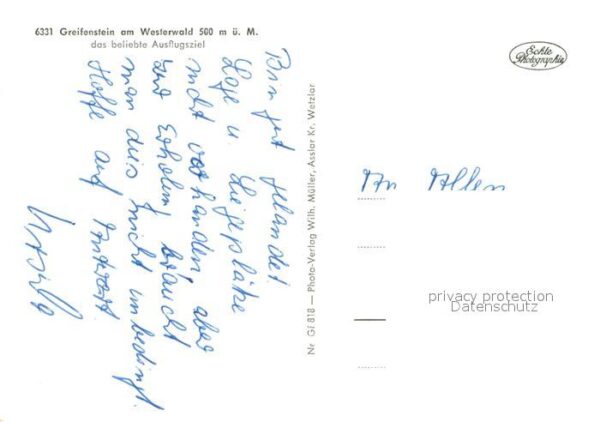 6331 Greifenstein am Westerwald 500 m ü. M.
das beliebte Ausflugsziel
Echte
Photographie
Bin gut gelandet
Lage u. Liegeplätze
nicht vorhanden aber
zur Erholung braucht
man dies nicht unbedingt.
Hoffe auf
Nr. Gf 818 — Photo-Verlag Wilh. Müller, Asslar Kr. Wetzlar
An Allen
privacy protection
Datenschutz